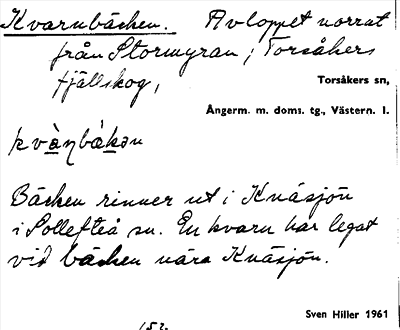 Kvarnbäcken. Avloppet norrut
från Stormyran, Torsåkers
fjällskog,
Torsåkers sn,
Ångerm. m. doms. tg., Västern. l.
kvàṇbàkən
Bäcken rinner ut i Knäsjön
i Sollefteå sn. En kvarn har legat
vid bäcken nära Knäsjön.
Sven Hiller 1961